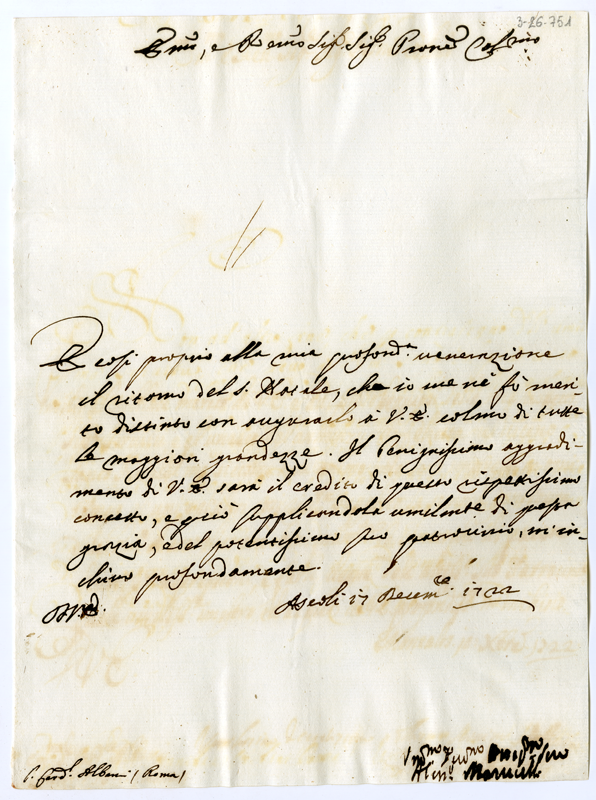 3-26-751
Emo, e Rẽmo Sigr. Sigr. Prone Colmo
È così proprio alla mia profonda. venerazione
il ritorno del S. Natale, che io me ne fò meri-
to distinto con augurarlo à V. E. colmo di tutte
le maggiori grandezze. Il benignissimo aggradi-
mento di V. E. sarà il credito di questo rispettosissimo
concetto, e quì supplicandola umilmente di questa
grazia, e del potentissimo suo patrocinio, m'in-
chino profondamente.
Ascoli 17 Decemre 1722
S. Card. Albani (Roma)
Vmo Devmo Obligmo Serv
Aless. Marucelli